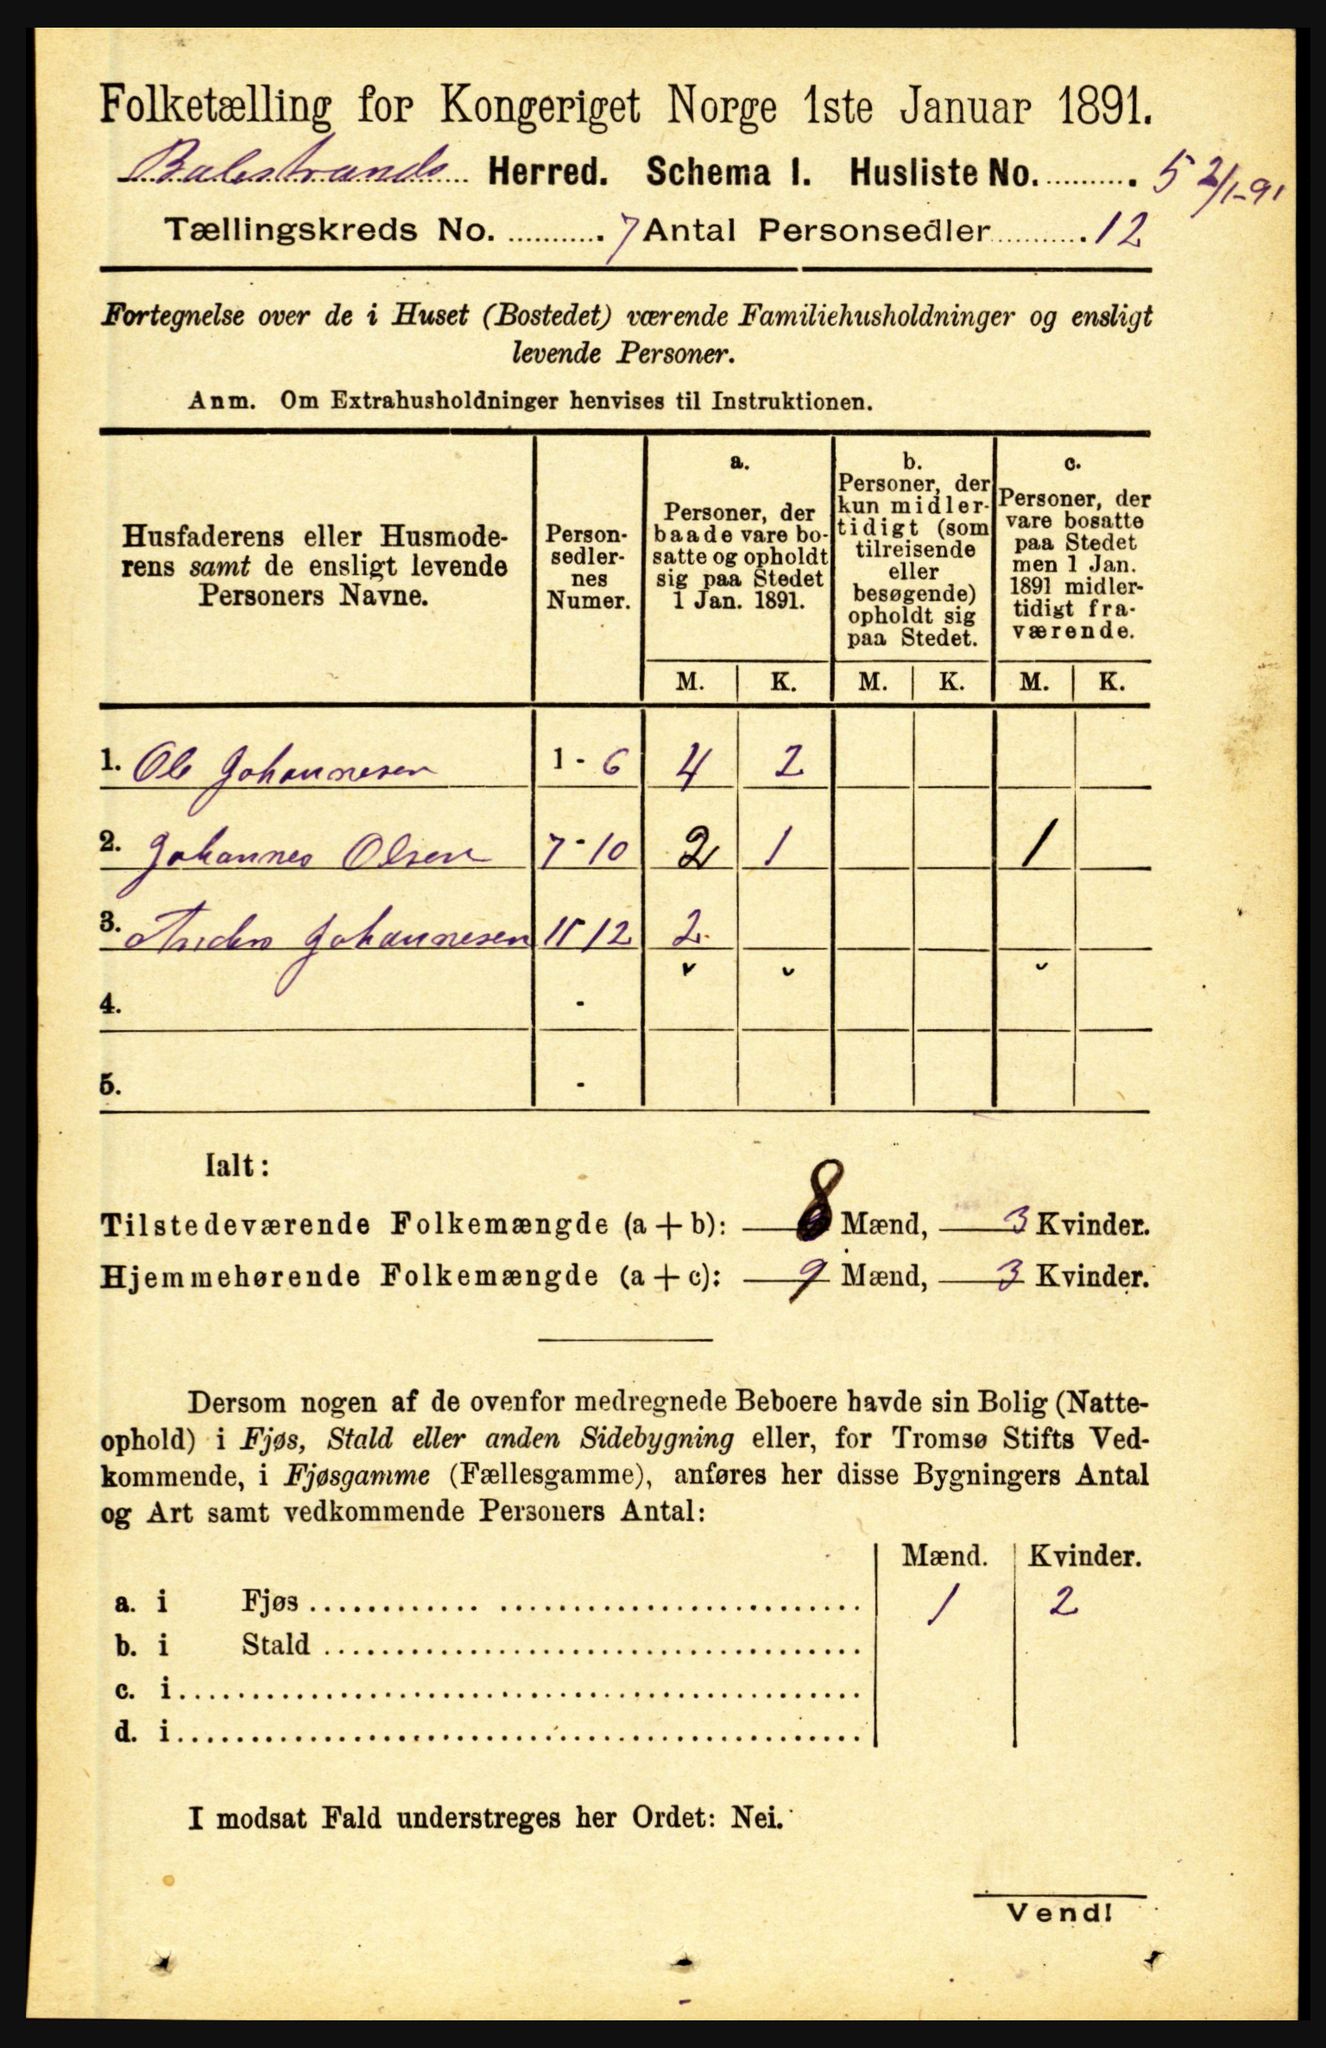 Folketælling for Kongeriget Norge 1ste Januar 1891.
Balestrands Herred. Schema I. Husliste No. .......... 5 2/1-91
Tællingskreds No. ........... 7 Antal Personsedler .......... 12
Fortegnelse over de i Huset (Bostedet) værende Familiehusholdninger og ensligt
levende Personer.
Anm. Om Extrahusholdninger henvises til Instruktionen.
Husfaderens eller Husmode-
rens samt de ensligt levende
Personers Navne.
Person-
sedler-
nes
Numer.
a.
Personer, der
baade vare bo-
satte og opholdt
sig paa Stedet
1 Jan. 1891.
b.
Personer, der
kun midler-
tidigt (som
tilreisende
eller
besøgende)
opholdt sig
paa Stedet.
c.
Personer, der
vare bosatte
paa Stedet
men 1 Jan.
1891 midler-
tidigt fra-
værende.
M. K. M. K. M. K.
1. Ole Johannesen 1 - 6 4 2
2. Johannes Olsen 7 - 10 2 1 1
3. Anders Johannesen 11 12 2
4. -
5. -
Ialt:
Tilstedeværende Folkemængde (a + b): 8 Mænd, 3 Kvinder.
Hjemmehørende Folkemængde (a + c): 9 Mænd, 3 Kvinder.
Dersom nogen af de ovenfor medregnede Beboere havde sin Bolig (Natte-
ophold) i Fjøs, Stald eller anden Sidebygning eller, for Tromsø Stifts Ved-
kommende, i Fjøsgamme (Fællesgamme), anføres her disse Bygningers Antal
og Art samt vedkommende Personers Antal:
Mænd. Kvinder.
a. i Fjøs ........................................ 1 2
b. i Stald ........................................
c. i ........................................
d. i ........................................
I modsat Fald understreges her Ordet: Nei.
Vend!